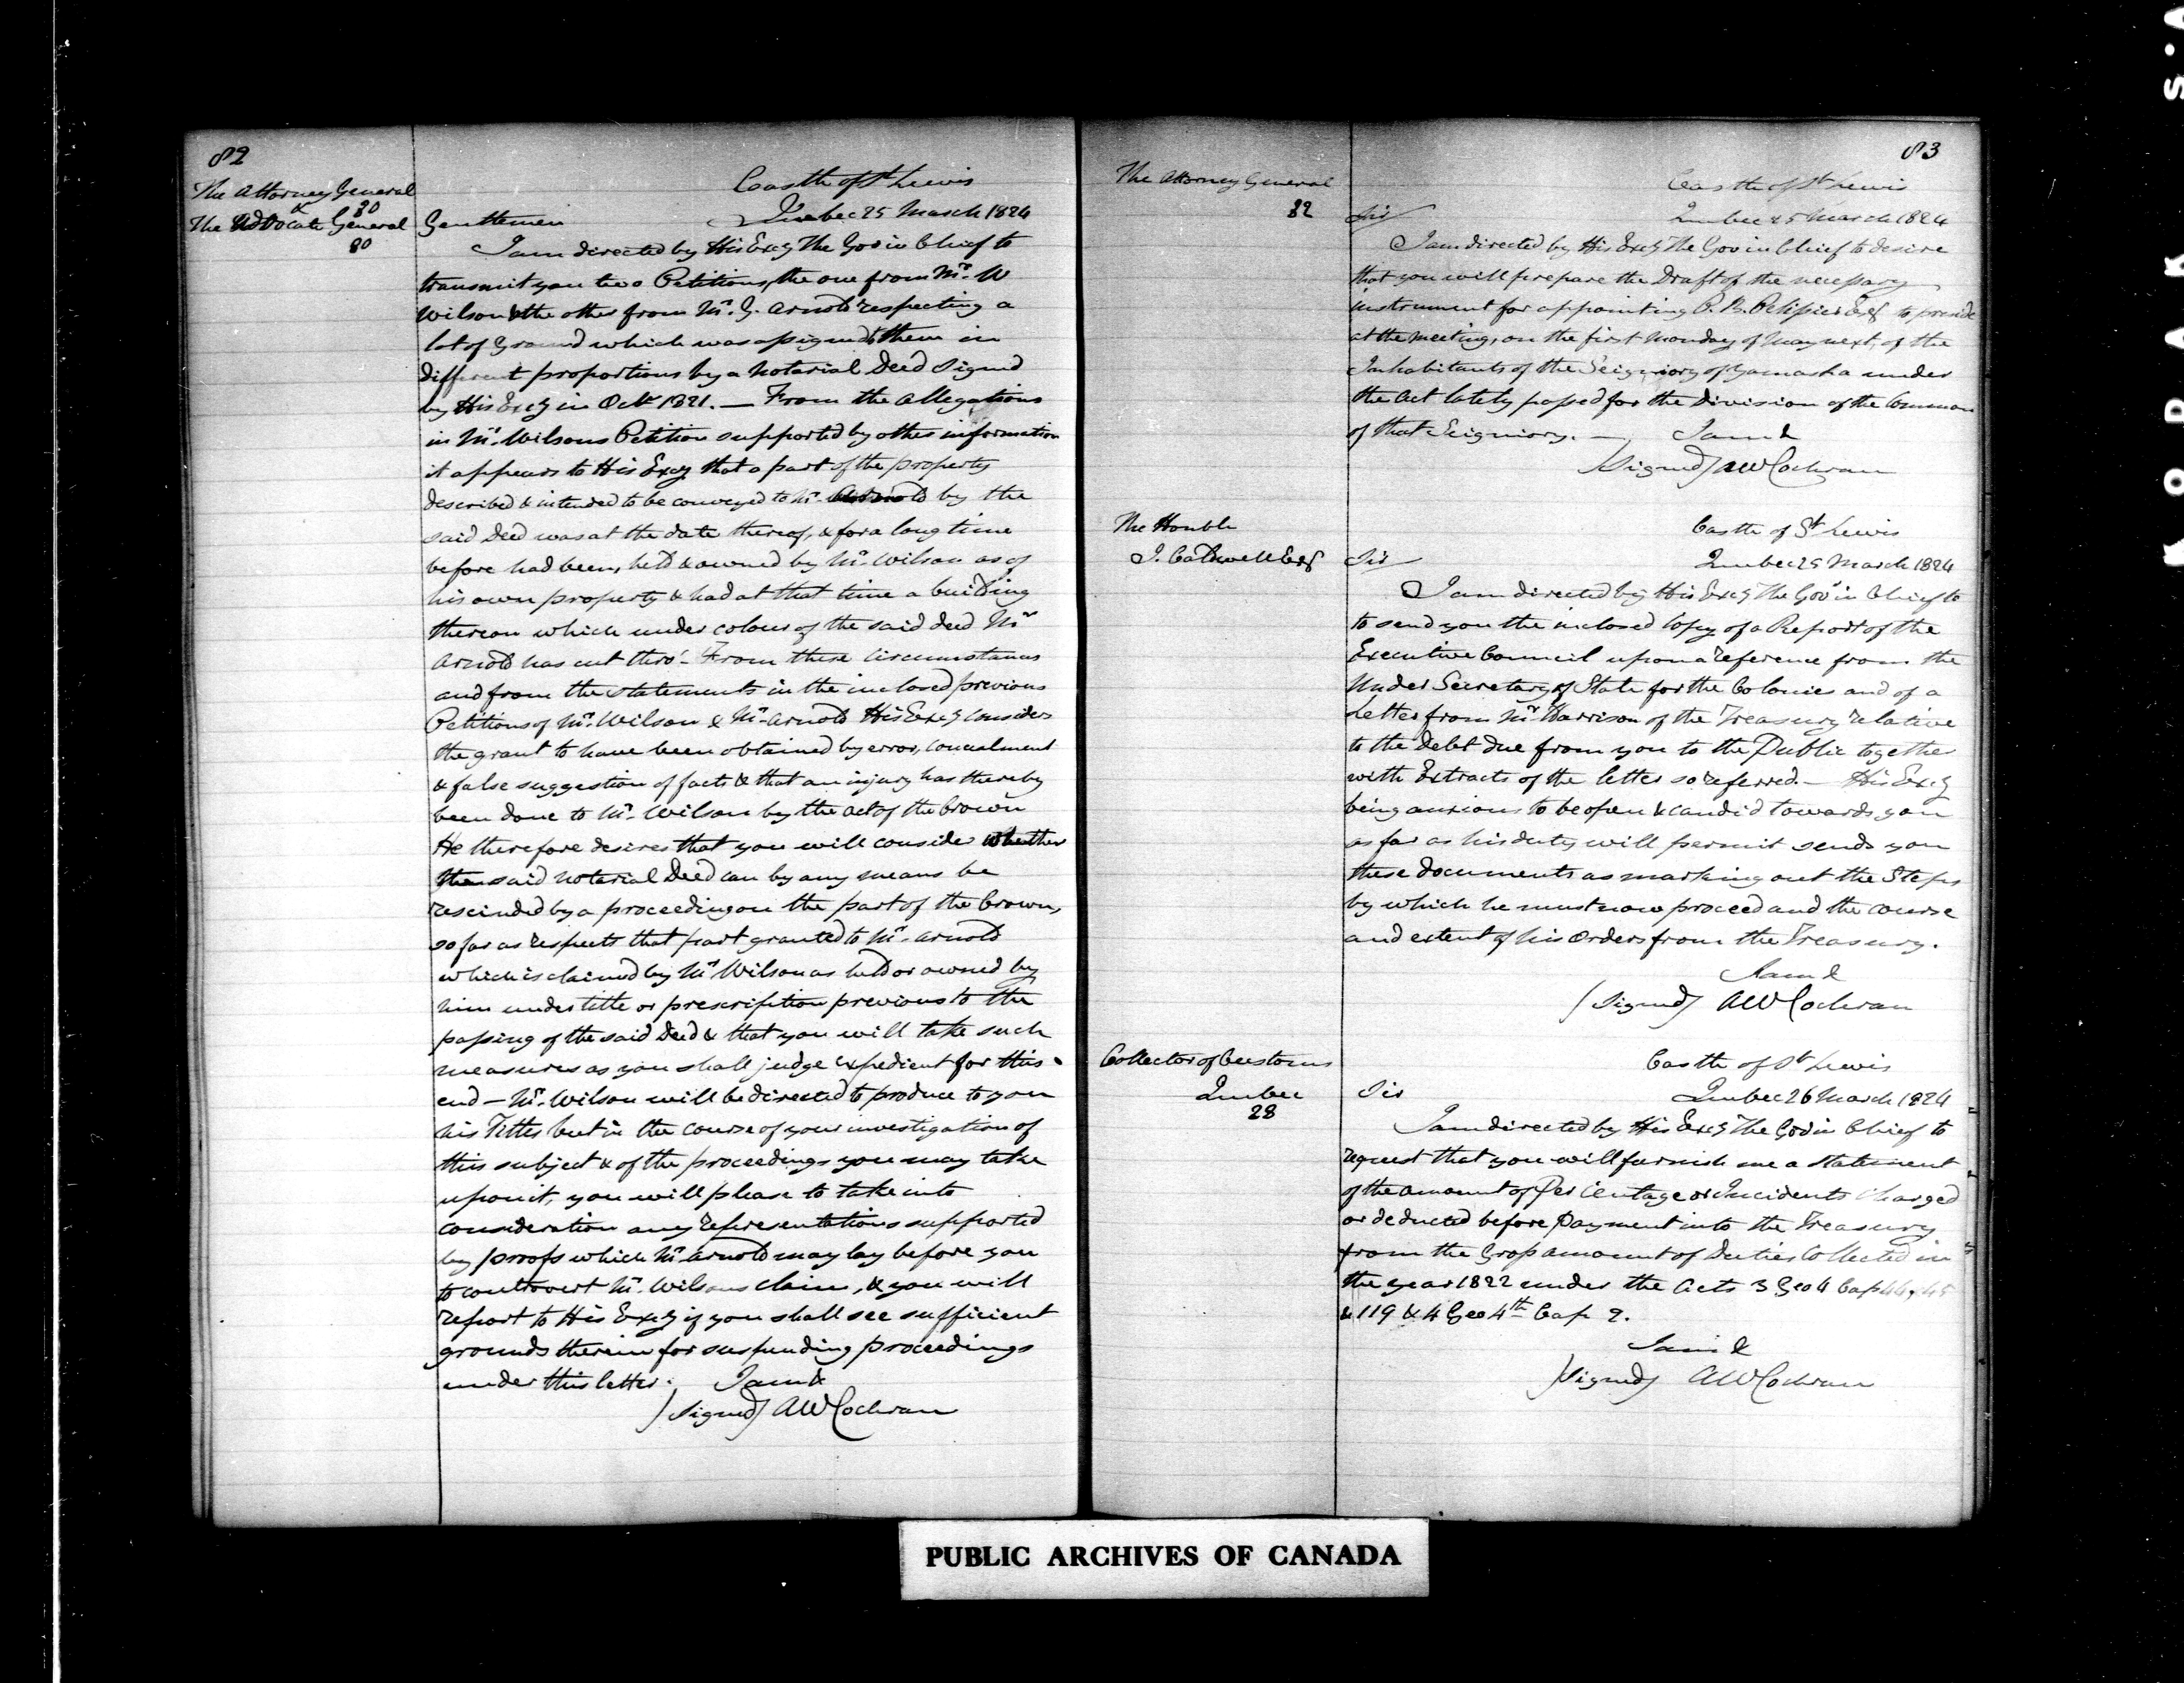 82
The Attorney General
& 80
The Advocate General
80
Castle of St Lewis
Quebec 25 March 1824
Gentlemen
I am directed by His Excy The Gov in Chief to
transmit you two Petitions, the one from Mr. W
Wilson & the other from Mr. G. Arnold respecting a
lot of Ground which was assigned to them in
different proportions by a Notarial Deed Signed
by His Excy in Octr 1821. — From the Allegations
in Mr. Wilsons Petition supported by other information
it appears to His Excy that a part of the property
described & intended to be conveyed to Mr. Arnold by the
said Deed was at the date thereof, & for a long time
before had been, held & owned by Mr. Wilson as of
his own property & had at that time a building
thereon which under colour of the said deed Mr
Arnold has cut thro' - From these circumstances
and from the statements in the inclosed previous
Petitions of Mr. Wilson & Mr. Arnold His Excy considers
the grant to have been obtained by error, concealment
& false suggestion of facts & that an injury has thereby
been done to Mr. Wilson by the act of the Crown
He therefore desires that you will consider whether
the said notarial Deed can by any means be
rescinded by a proceeding on the part of the Crown,
so far as respects that part granted to Mr. Arnold
which is claimed by Mr Wilson as held or owned by
him under title or prescription previous to the
passing of the said Deed & that you will take such
measures as you shall judge expedient for this
end — Mr. Wilson will be directed to produce to you
his Titles but in the course of your investigation of
this subject & of the proceedings you may take
upon it, you will please to take into
consideration any representations supported
by proofs which Mr Arnold may lay before you
to controvert Mr. Wilsons claim, & you will
report to His Excy if you shall see sufficient
grounds therein for suspending proceedings
under this letter. I am &
(Signed) AW Cochran
83
The Attorney General
82
Castle of St Lewis
Quebec 25 March 1824
Sir
I am directed by His Excy The Gov in Chief to desire
that you will prepare the Draft of the necessary
instrument for appointing P. B. Pelissier Esqr to preside
at the meeting, on the first Monday of May next, of the
Inhabitants of the Seigniory of Yamaska under
the Act lately passed for the Division of the Common
of that Seigniory. — I am &
(Signed) AW Cochran
The Honble
J. Caldwell Esqr
Castle of St Lewis
Quebec 25 March 1824
Sir
I am directed by His Excy The Gov in Chief to
to send you the inclosed Copy of a Report of the
Executive Council upon a reference from the
Under Secretary of State for the Colonies and of a
Letter from Mr Harrison of the Treasury relative
to the debt due from you to the Public together
with Extracts of the letter so referred. — His Excy
being anxious to be open & candid towards you
as far as his duty will permit sends you
these documents as marking out the Steps
by which he must now proceed and the course
and extent of his Orders from the Treasury.
I am &
(Signed) AW Cochran
Collector of Customs
Quebec
28
Castle of St Lewis
Quebec 26 March 1824
Sir
I am directed by His Excy The Gov in Chief to
request that you will furnish me a statement
of the amount of Per Centage or Incidents charged
or deducted before payment into the Treasury
from the Gross amount of Duties Collected in
the year 1822 under the Acts 3 Geo 4 Cap 44, 45
& 119 & 4 Geo 4th Cap 2.
I am &
(Signed) AW Cochran
PUBLIC ARCHIVES OF CANADA